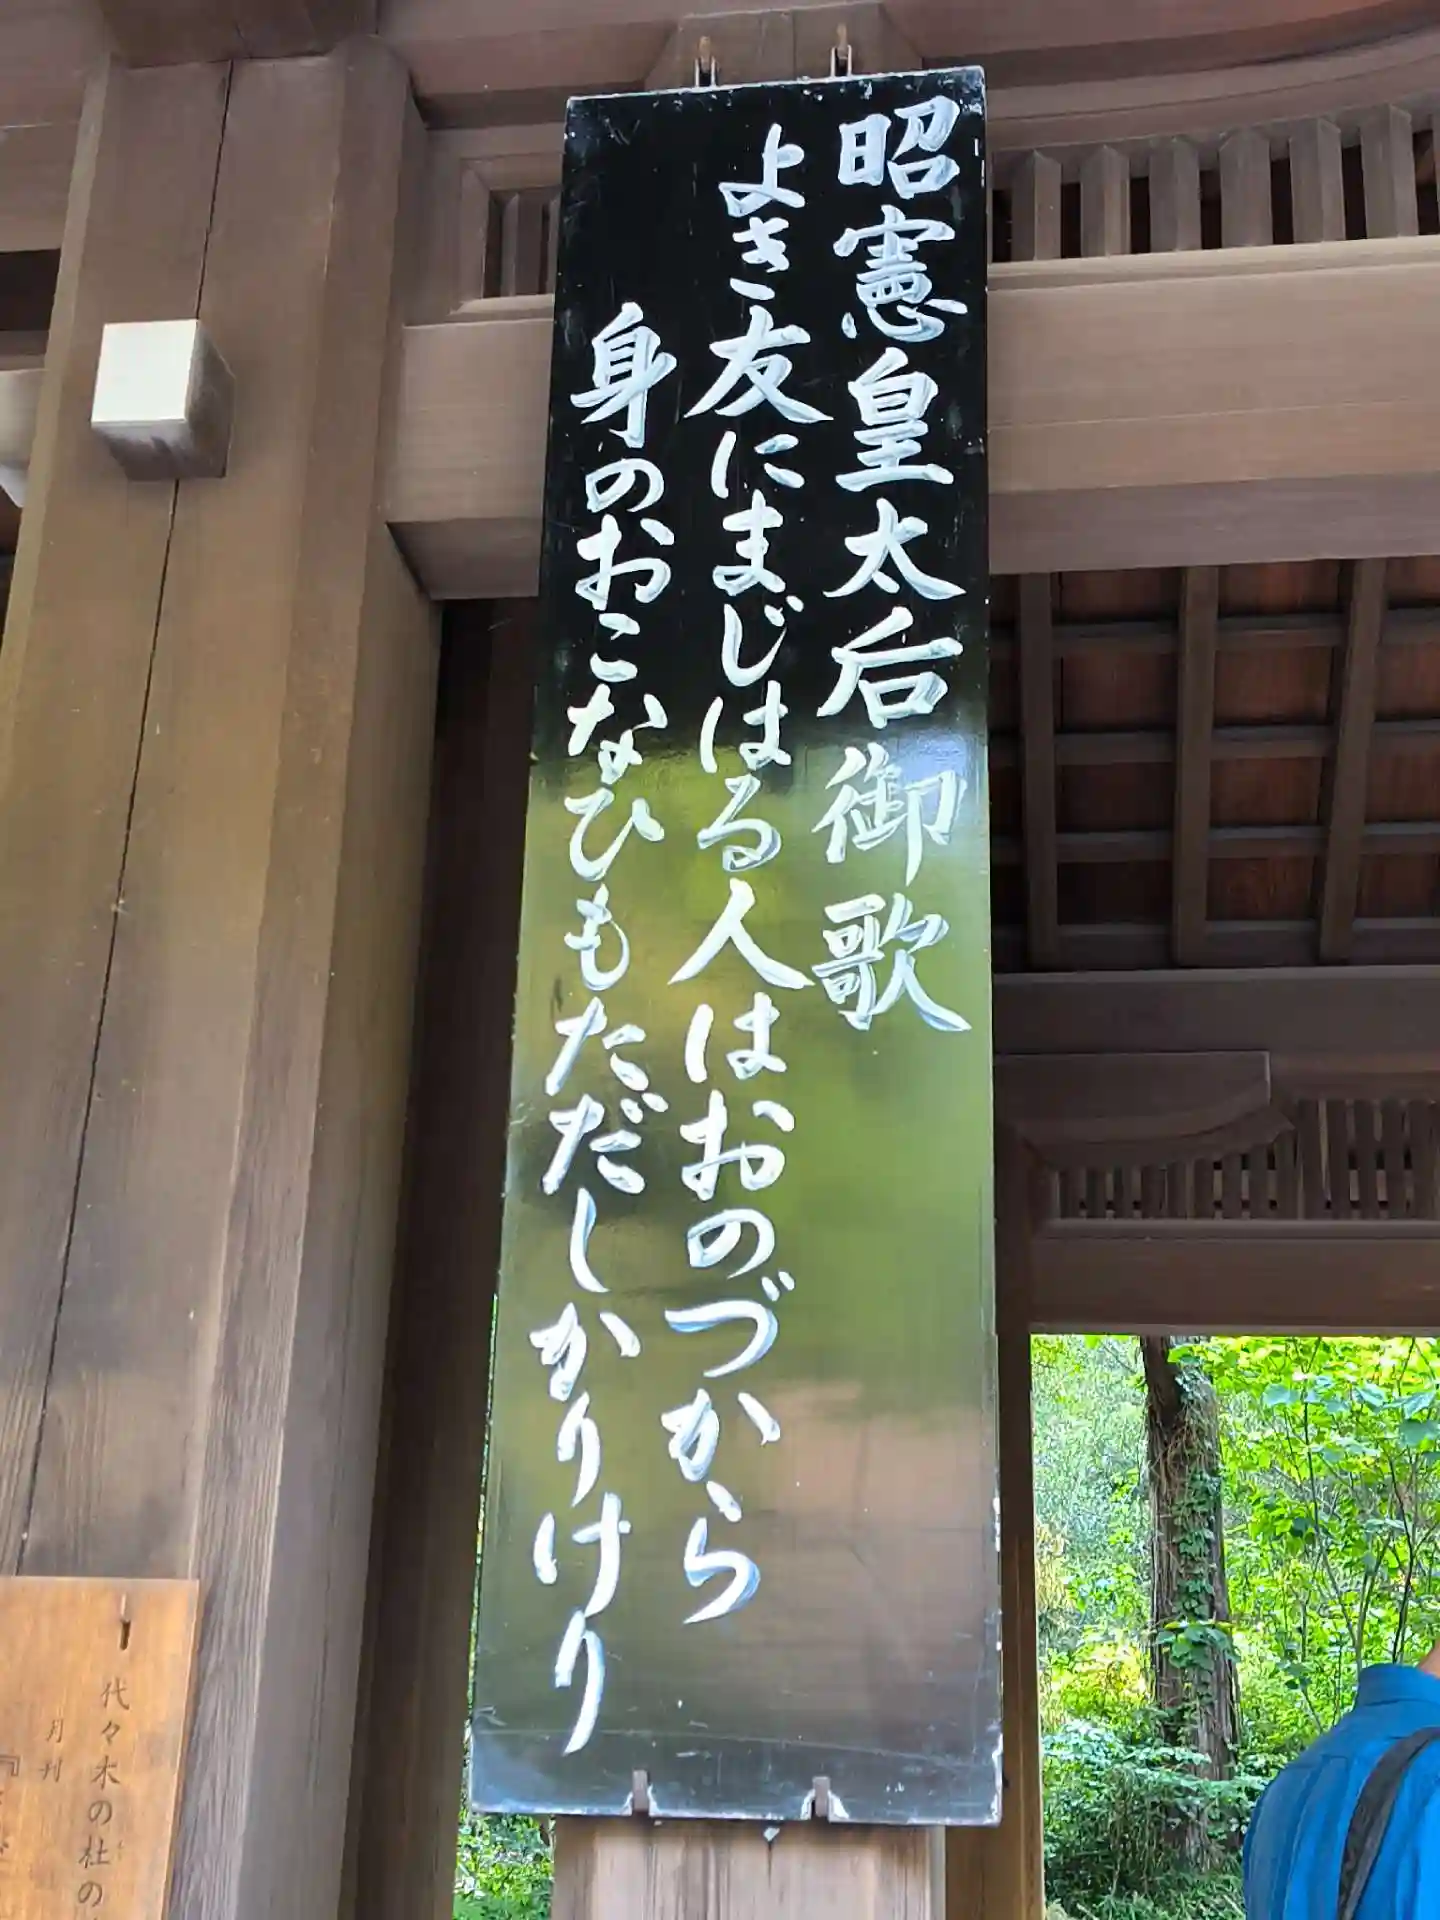 昭憲皇太后御歌
よき友にまじはる人はおのづから
身のおこなひもただしかりけり
代々木の杜の
月刊